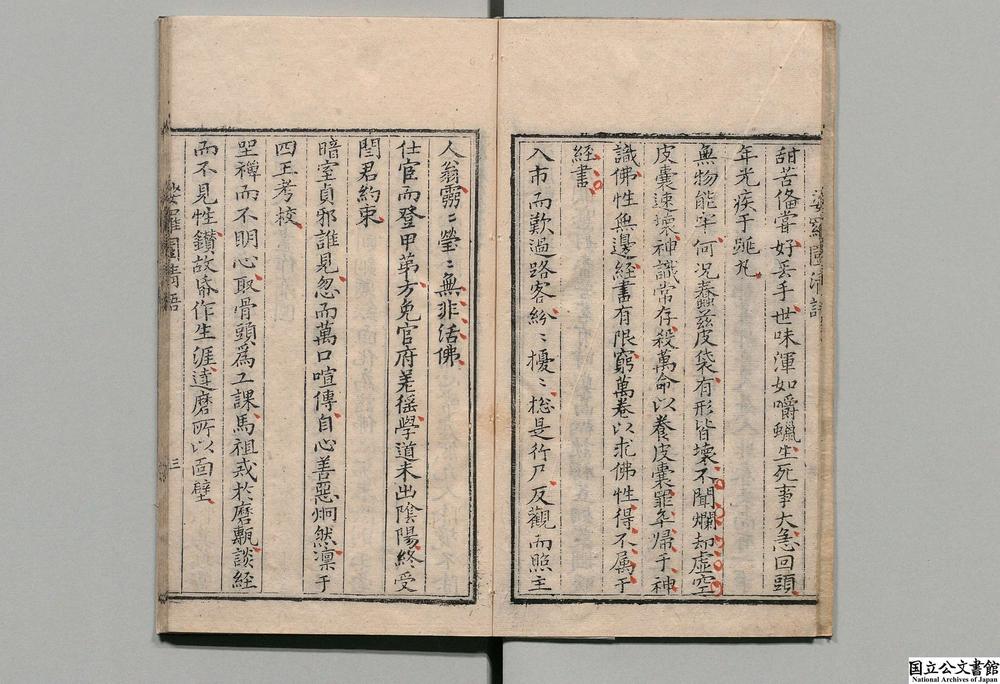 甜苦备嘗好丟手世味渾如嚼蠟生死事大急回頭
年光疾于跳丸
無物能牢何況蠢茲皮袋有形皆壞不聞爛却虛空
皮囊速壞神識常存殺萬命以養皮囊罪卒歸于神
識佛性無邊經書有限窮萬卷以求佛性得不属于
經書
入市而歎過路客紛〻擾〻捴是行尸反觀而照主
人翁靈〻瑩〻無非活佛
仕官而登甲苐方免官府差徭學道未出陰陽終受
閻君約束
暗室貞邪誰見忽而萬口喧傳自心善惡炯然凛于
四王考校
坐禅而不明心取骨頭為工課馬祖戒於磨甎談經
而不見性鑚故昏作生涯達磨所以面壁
娑羅園清語
三
国立公文書館
National Archives of Japan